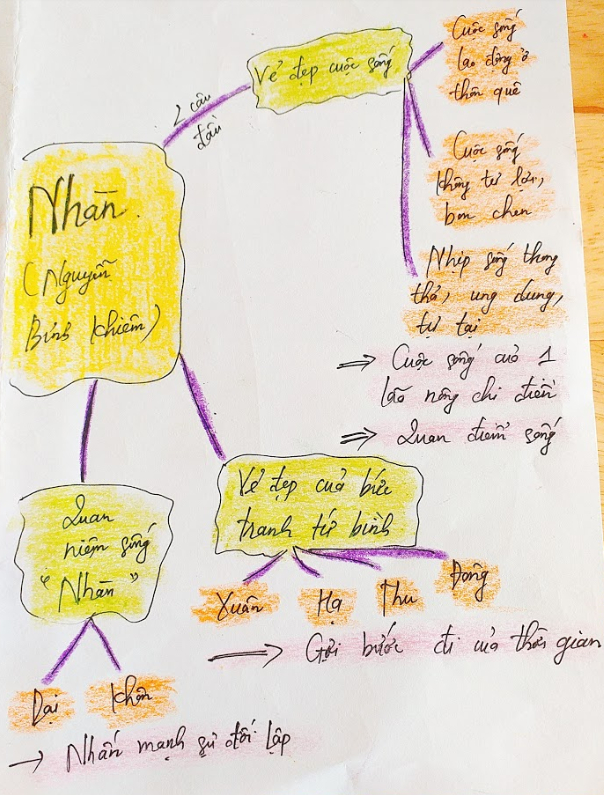 Nhàn
(Nguyễn
Bỉnh Khiêm)
2 câu
đầu
Vẻ đẹp cuộc sống
Cuộc sống
lao động ở
thôn quê
Cuộc sống
không tư lợi,
bon chen
Nhịp sống thong
thả, ung dung,
tự tại
⇒ Cuộc sống của 1
lão nông chi điền
⇒ Quan điểm sống
Vẻ đẹp của bức
tranh tứ bình
Xuân
Hạ
Thu
Đông
→ Gợi bước đi của thời gian
Quan
niệm sống
"Nhàn"
Dại
Khôn
→ Nhấn mạnh sự đối lập